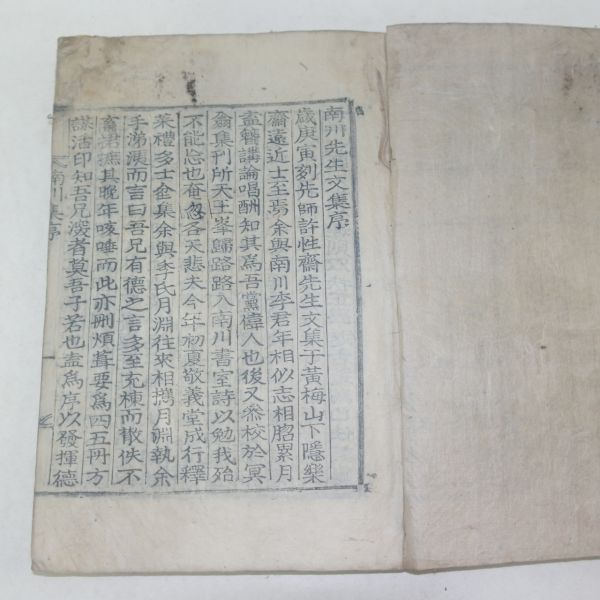 南川先生文集序
歲庚寅刻先師許性齋先生文集于黃梅山下隱樂
齋遠近士至焉余與南川李君年相似志相䀫累月
盍簪講論唱酬知其爲吾黨偉人也後又叅校於冥
翁集刊所天王峯歸路路入南川書室詩以勉我殆
不能忘也奄忽各天悲夫今年初夏敬義堂成行釋
菜禮多士僉集余與李氏月淵往來相携月淵執余
手涕洟而言曰吾兄有德之言多至充棟而散佚不
畜諸撫其晚年咳唾而此亦刪煩葺要爲四五冊方
謀活印知吾兄深者莫吾子若也盍爲序以發揮德
南川集序